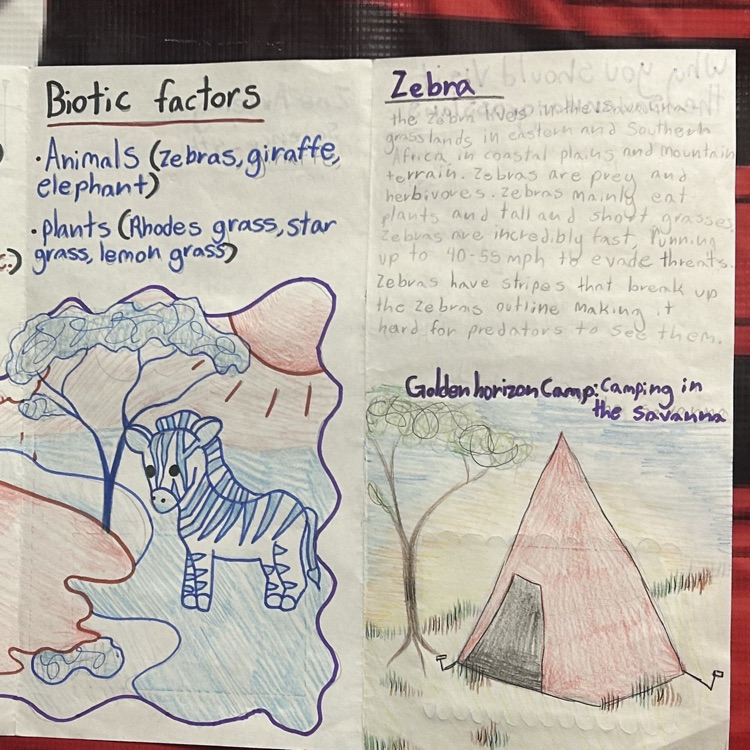 Biotic factors
·Animals (zebras, giraffe,
elephant)
·plants (Rhodes grass, star
grass, lemon grass)
Zebra
the zebra lives in the savanna
grasslands in eastern and Southern
Africa in coastal plains and mountain
terrain. Zebras are prey and
herbivores. Zebras mainly eat
plants and tall and short grasses.
Zebras are incredibly fast, running
up to 40-55 mph to evade threats.
Zebras have stripes that break up
the zebras outline making it
hard for predators to see them.
Golden horizon Camp: Camping in
the Savanna